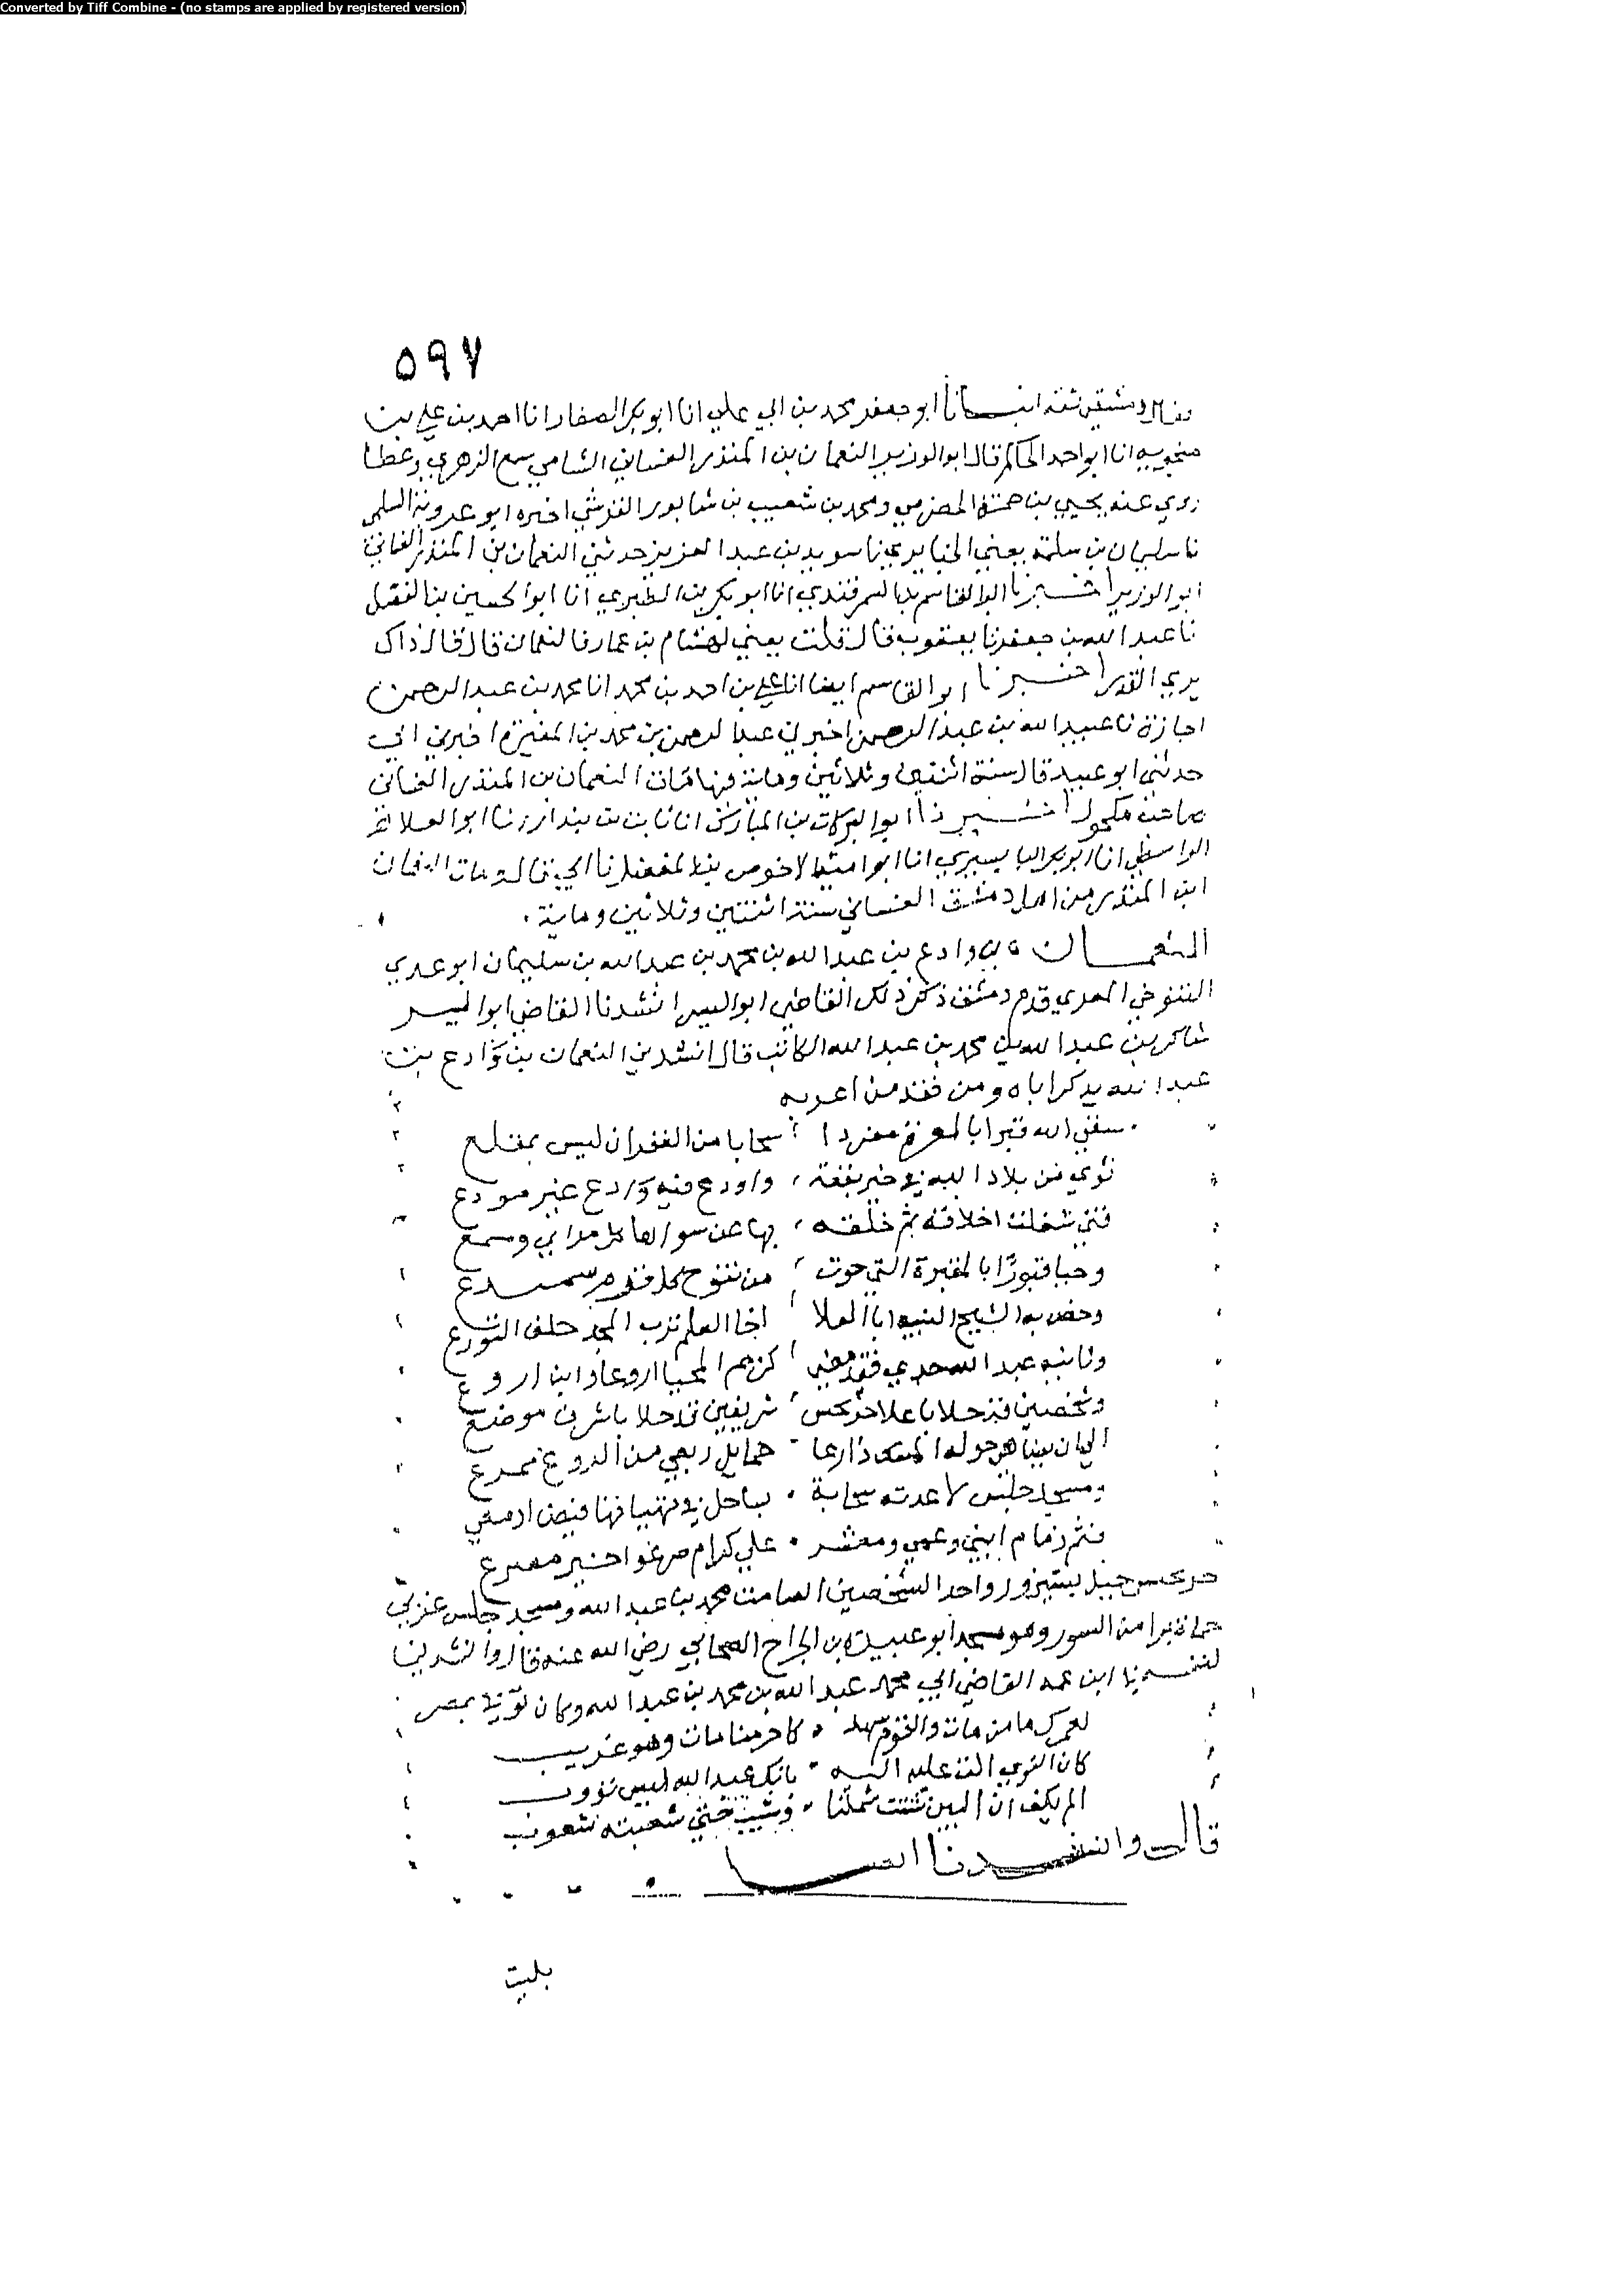 Converted by Tiff Combine - (no stamps are applied by registered version)
٥٩٧
فقال دمشقي ثقة انبــانا ابو جعفر محمد بن ابي علي انا ابو بكر الصفار انا احمد بن علي بن
منجويه انا ابو احمد الحاكم قال ابو الوزير النعمان بن المنذر الغساني الشامي سمع الزهري وعطا
روي عنه يحيي بن حمزة الحضرمي ومحمد بن شعيب بن شابور القرشي اخبره ابو عروبة السلمي
نا سليمان بن سلمة يعني الخبايري نا سويد بن عبد العزيز حدثني النعمان بن المنذر الغساني
ابو الوزير اخــبرنا ابو القاسم بن السمرقندي انا ابو بكر بن الطبري انا ابو الحسين بن الفضل
نا عبد الله بن جعفر نا يعقوب قال قلت يعني لهشام بن عمار فالنعمان قال قال ذاك
يري القدر اخــبرنا ابو القاسم ايضا انا علي بن احمد بن محمد انا محمد بن عبد الرحمن
اجازة نا عبيد الله بن عبد الرحمن اخبرني عبد الرحمن بن محمد بن المغيرة اخبرني ابي
حدثني ابو عبيد قال سنة اثنتين وثلاثين وماية فيها مات النعمان بن المنذر الغساني
صاحب مكحول اخــبرنا ابو البركات بن المبارك انا ثابت بن بندار نا ابو العلا
الواسطي انا ابو بكر البابسيري انا ابو امية الاحوص بن المفضل نا ابي قال ومات النعمان
ابن المنذر من اهل دمشق الغساني سنة اثنتين وثلاثين وماية .
النعمــان بن وادع بن عبد الله بن محمد بن عبد الله بن سليمان ابو عدي
التنوخي المعري قدم دمشق ذكر ذلك القاضي ابو اليسر انشدنا القاضي ابو اليسر
شاكر بن عبد الله بن محمد بن عبد الله الكاتب قال انشدني النعمان بن وادع بن
عبد الله يذكر اباه ومن فقد من
سقي الله قبرا بالمعرة مفردا سحابا من الغفران ليس بمقلع
ثوي من بلاد الله في خير بقعة واودع فيه وادع غير مودع
فتي شغلت اخلاقه ثم خلقه بها عن سواها كل مراي ومسمع
وحبا قبورا بالمقبرة التي حوت من تنوخ كل قرم سميدع
وخص به الشيخ النبيه ابا العلا اخا العلم ترب المجد حلف التورع
وثانيه عبد الله جدي فقد مضي كريم المحيا اروعا وابن اروع
وشخصين قد حلا باعلا حربحس شريفين قد حلا باشرف موضع
خمايل ربعي من الروع ممرع
ومسجد جلس لا عدته سحابة
فثم زمام ابني وعمي ومعشر علي كرام صرعوا خير مصرع
حربحس جبل بشيزر وواحد الشخصين الصامت محمد بن عبد الله ومسجد جلس غربي
حماة برا من السور وهو مسجد ابو عبيدة بن الجراح الصحابي رضي الله عنه قال وانشدني
لنفسه في ابن عمه القاضي ابي محمد عبد الله بن محمد بن عبد الله وكان توفي بمصر
لعمرك ما من مات والقوم شهد كاخر منا مات وهو غريب
كان النوي الت عليه اليه بانك عبد الله ليس تؤوب
الم يكف ان البين شتت شملنا وشيب حتي شعبته شعوب
قال وانشدنا
بليت